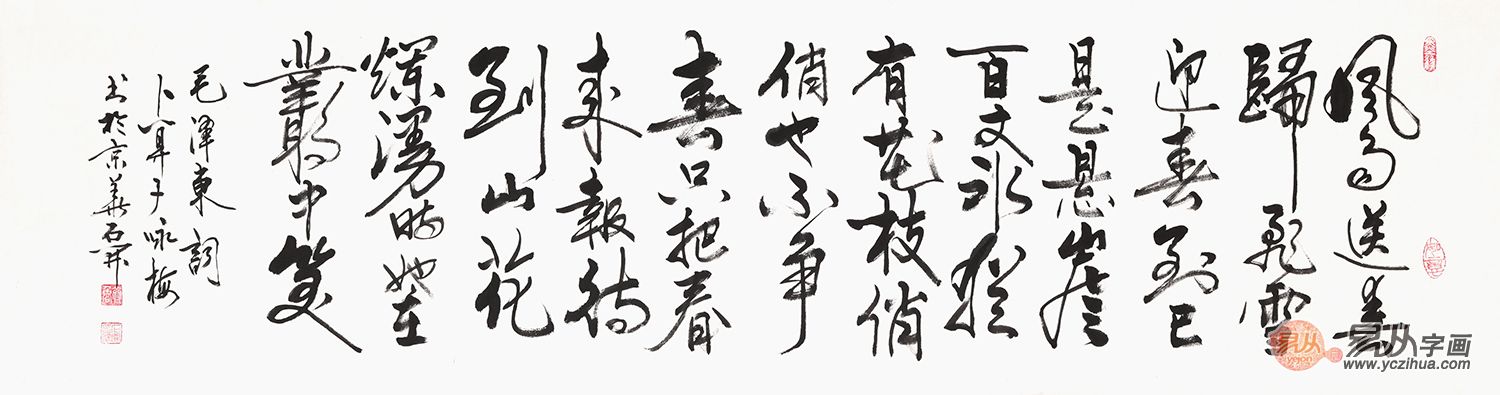 風雨送春
歸飛雪
迎春到已
是悬崖
百丈冰猶
有花枝俏
俏也不争
春只把春
来報待
到山花
爛漫時她在
叢中笑
毛澤東詞
卜算子咏梅
书於京華石開
易从
yejon
易从字画
www.yczihua.com